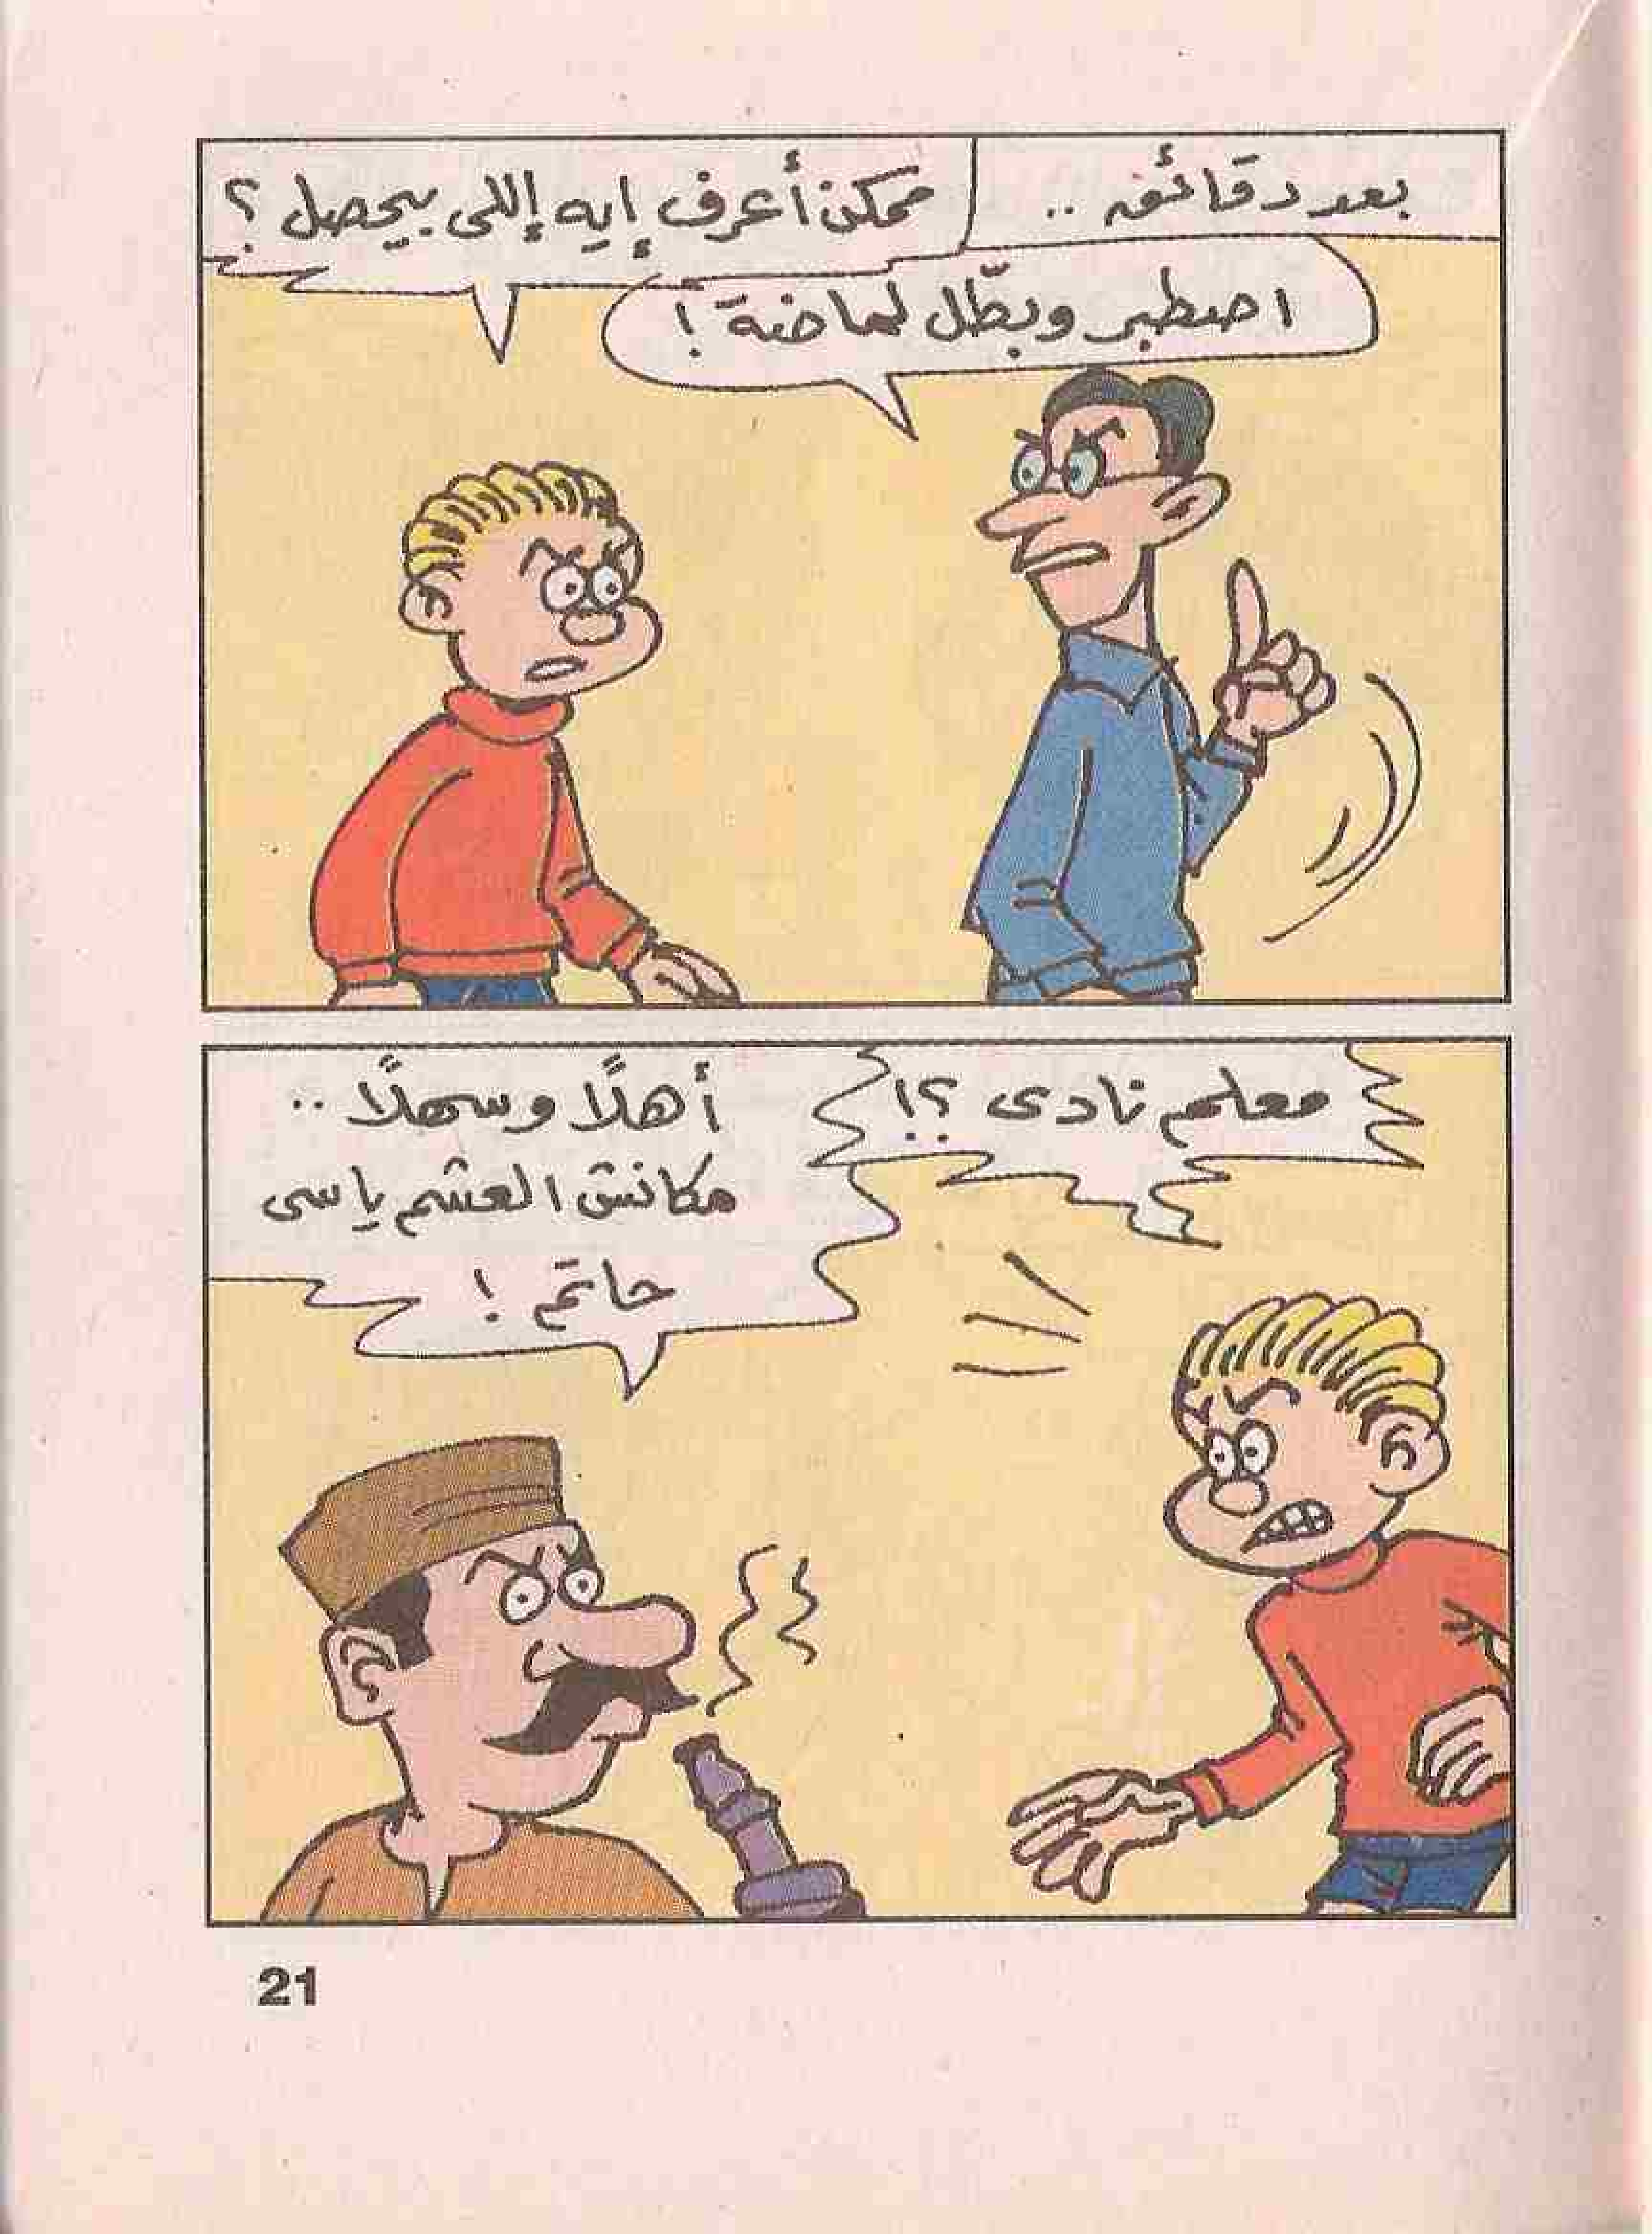 بعد دقائق ..
ممكن أعرف إيه إللى بيحصل ؟
اصطبر وبطّل لماضة !
معلم نادى ؟!
أهلًا وسهلًا ..
مكانش العشم ياسى
حاتم !
21